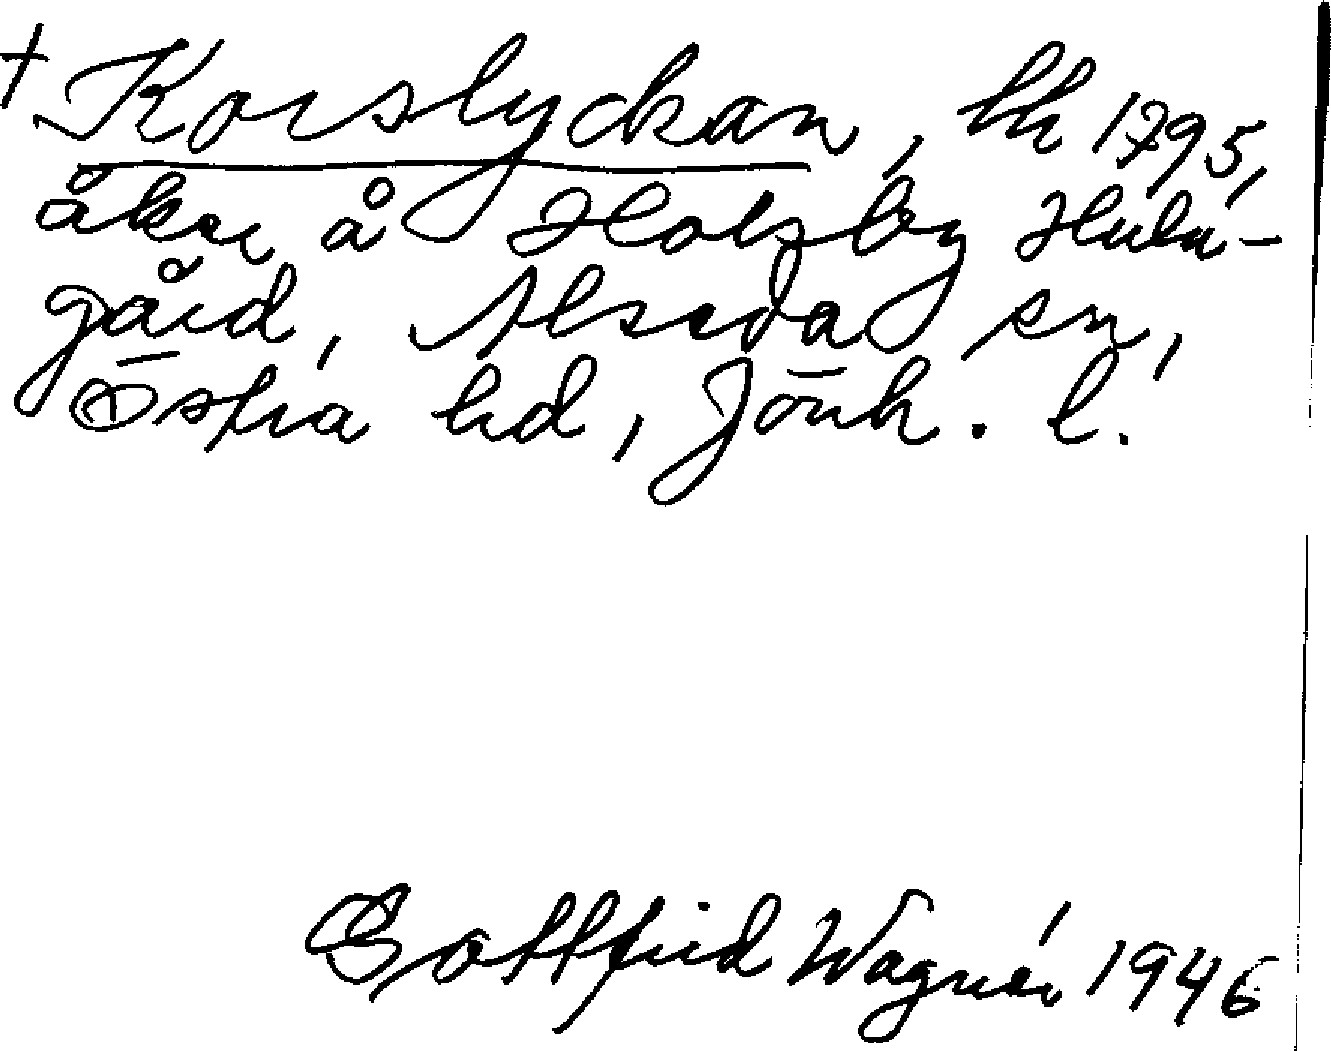 † Korslyckan, lh 1795,
åker å Holsby Hulu-
gård, Alseda sn,
Östra hd, Jönk. l.
Gottfrid Wagnér 1946